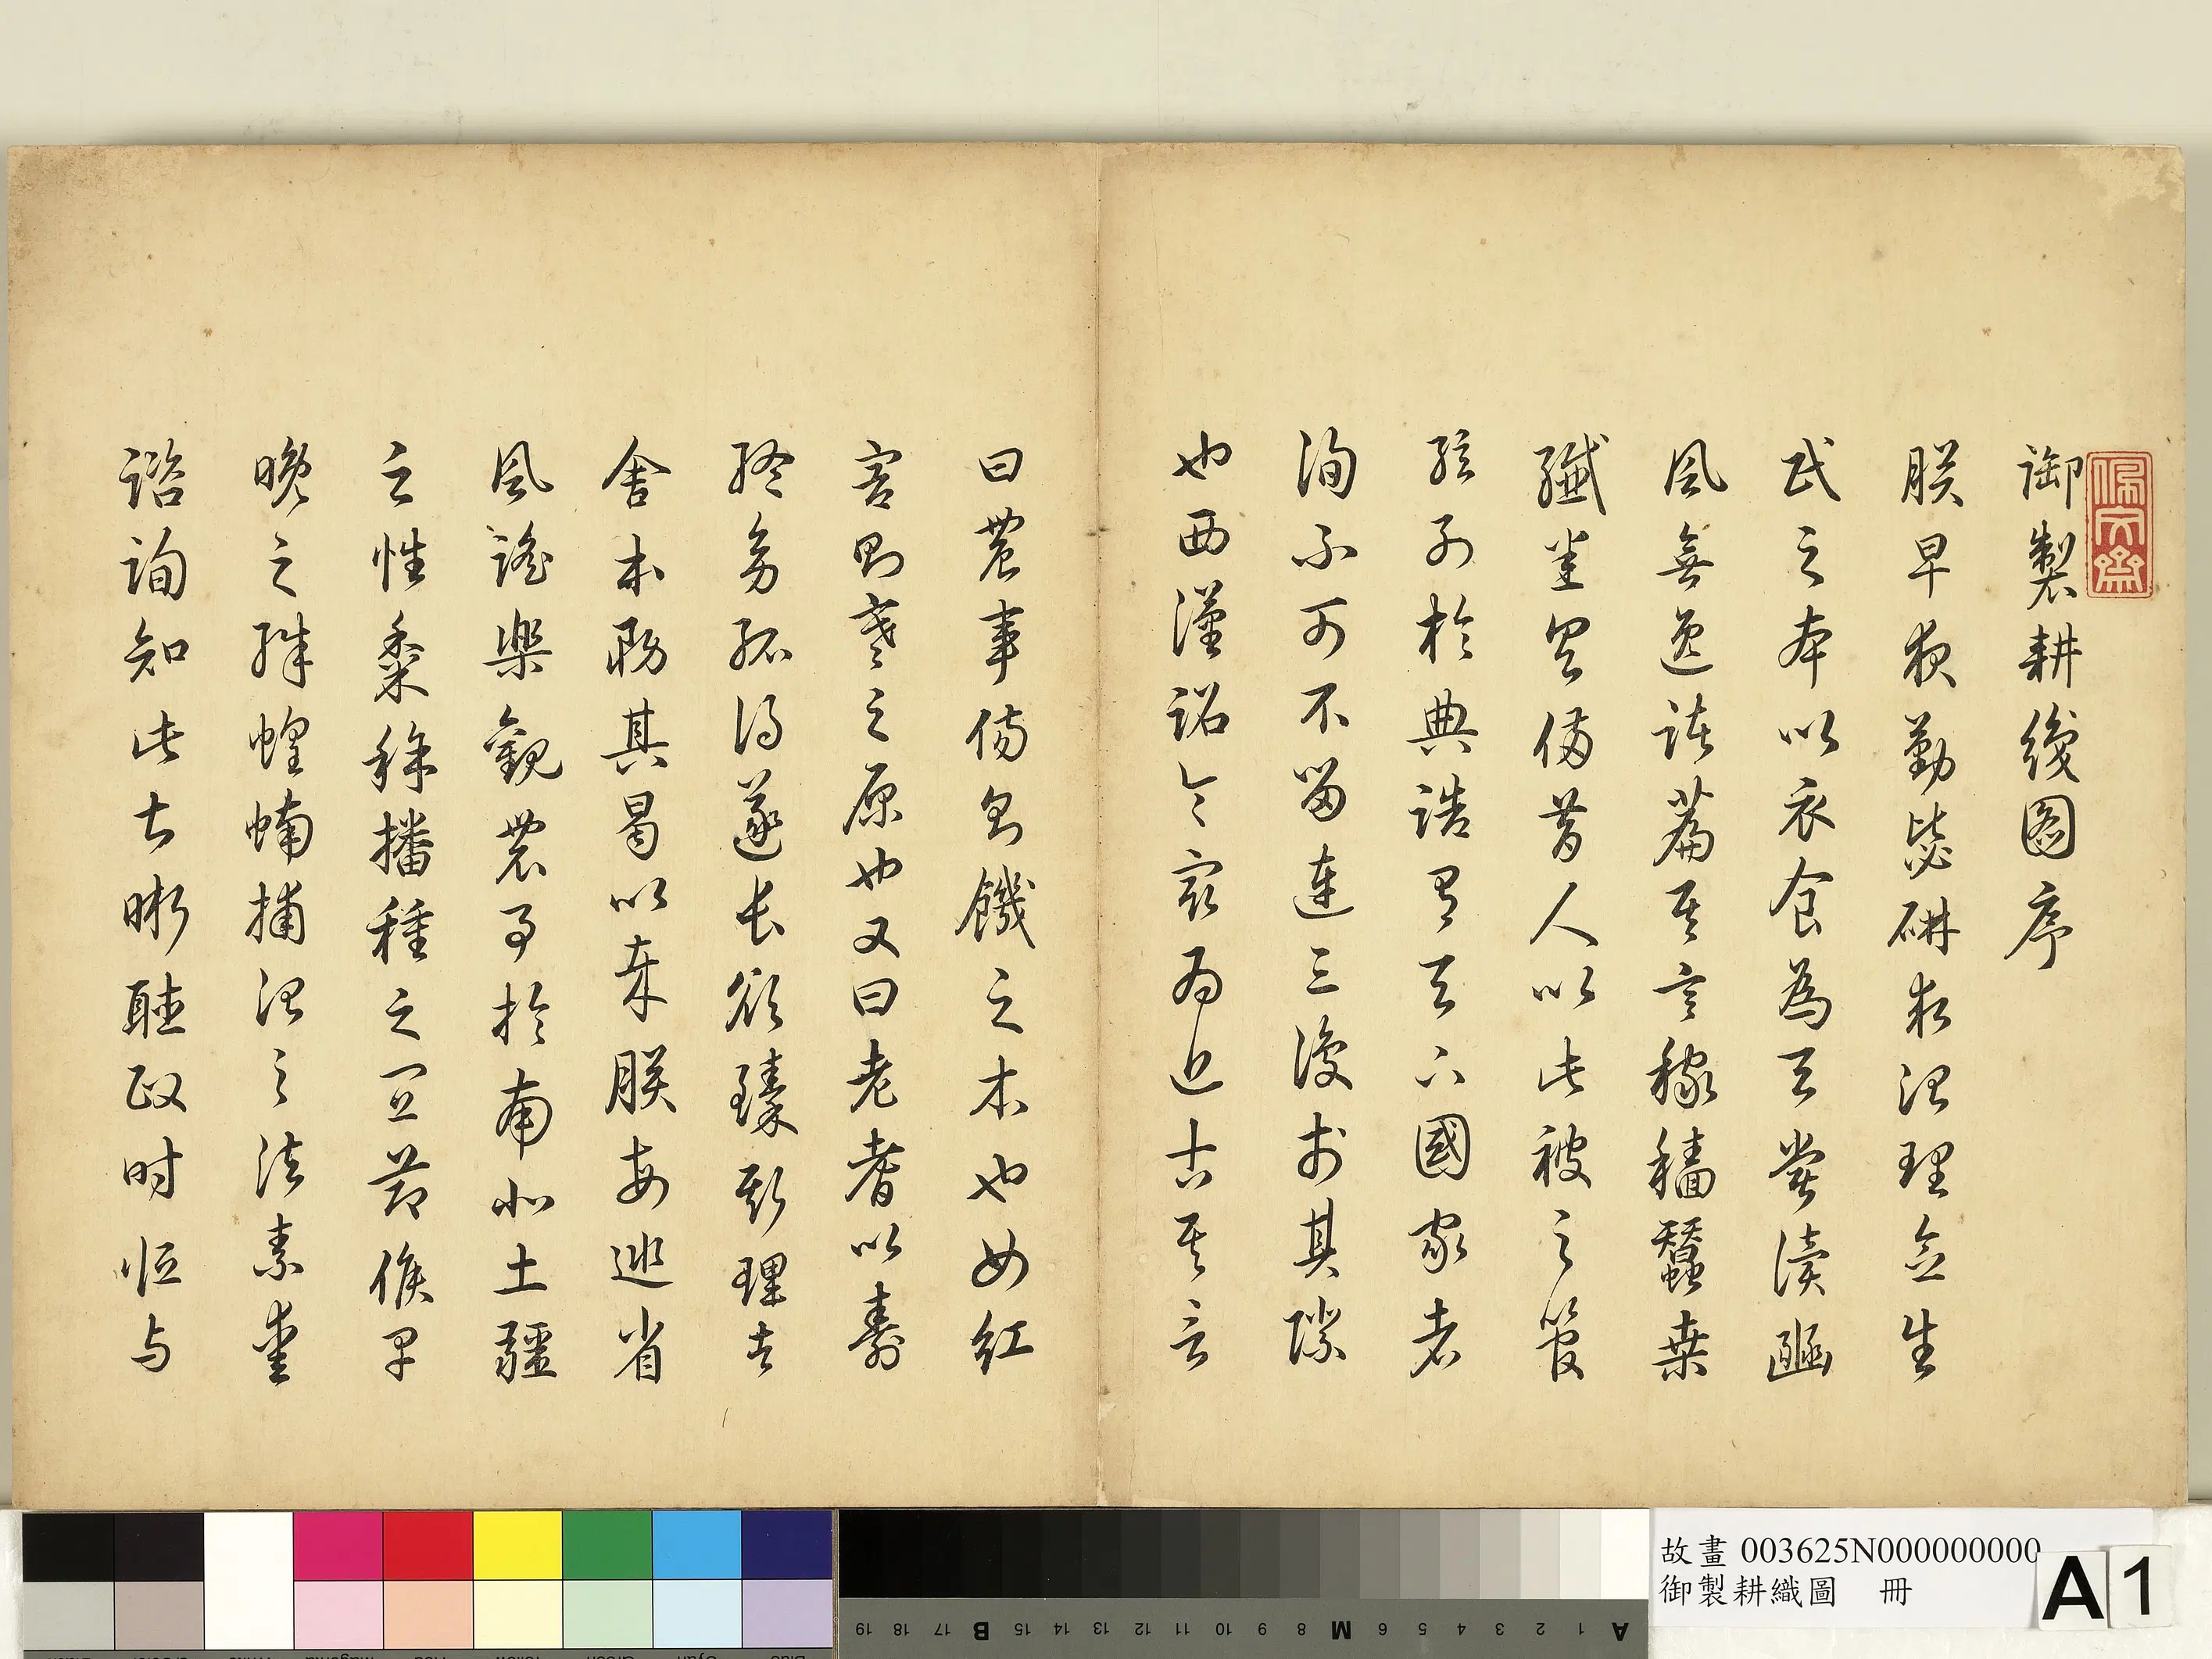 佩文齋
御製耕織圖序
朕早夜勤毖研求治理念生
民之本以衣食為天嘗讀豳
風無逸諸篇其言稼穡蠶桑
纖悉具備昔人以此被之管
弦列於典誥有天下國家者
洵不可不留連三復於其際
也西漢詔令最為近古其言
曰農事傷則饑之本也女紅
害則寒之原也又曰老耆以壽
終幼孤得遂長欲臻斯理者
舍本務其曷以哉朕每巡省
風謠樂觀農事於南北土疆
之性黍稌播種之宜節候早
晚之殊蝗蝻捕治之法素愛
諮詢知此甚晰聽政時恒与
故畫 003625N000000000
御製耕織圖 冊
A1
A 1 2 3 4 5 6 M 8 9 10 11 12 13 14 15 B 17 18 19